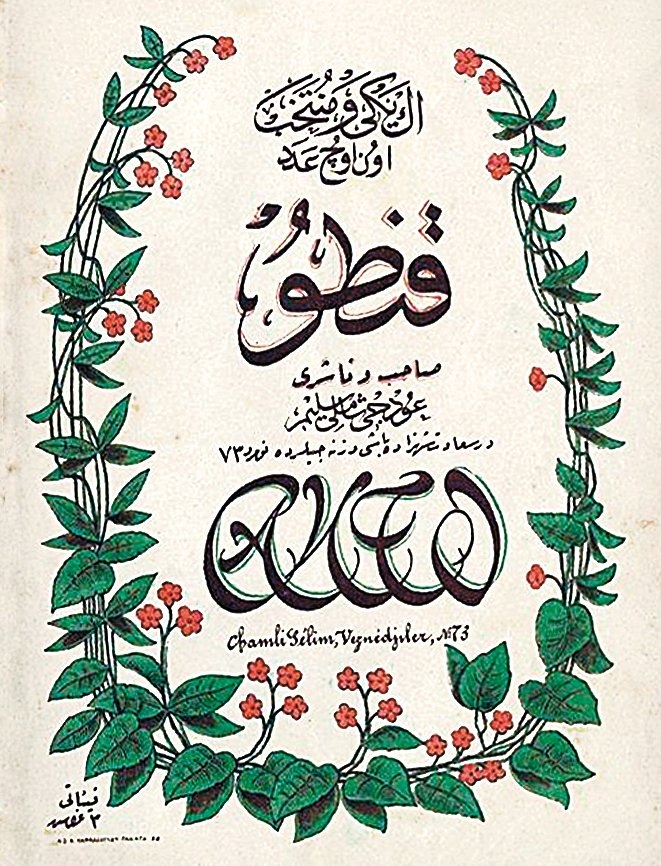 اڭ یڭی و مُنتخب
اون اوچ عدد
قنطو
صاحب و ناشری
عودجی شاملی سلیم
درسعادت شهزاده باشی وزنه جیلرده نومرو ٧٣
Chamli Sélim, Veznédjiler, № 73
فیئاتی